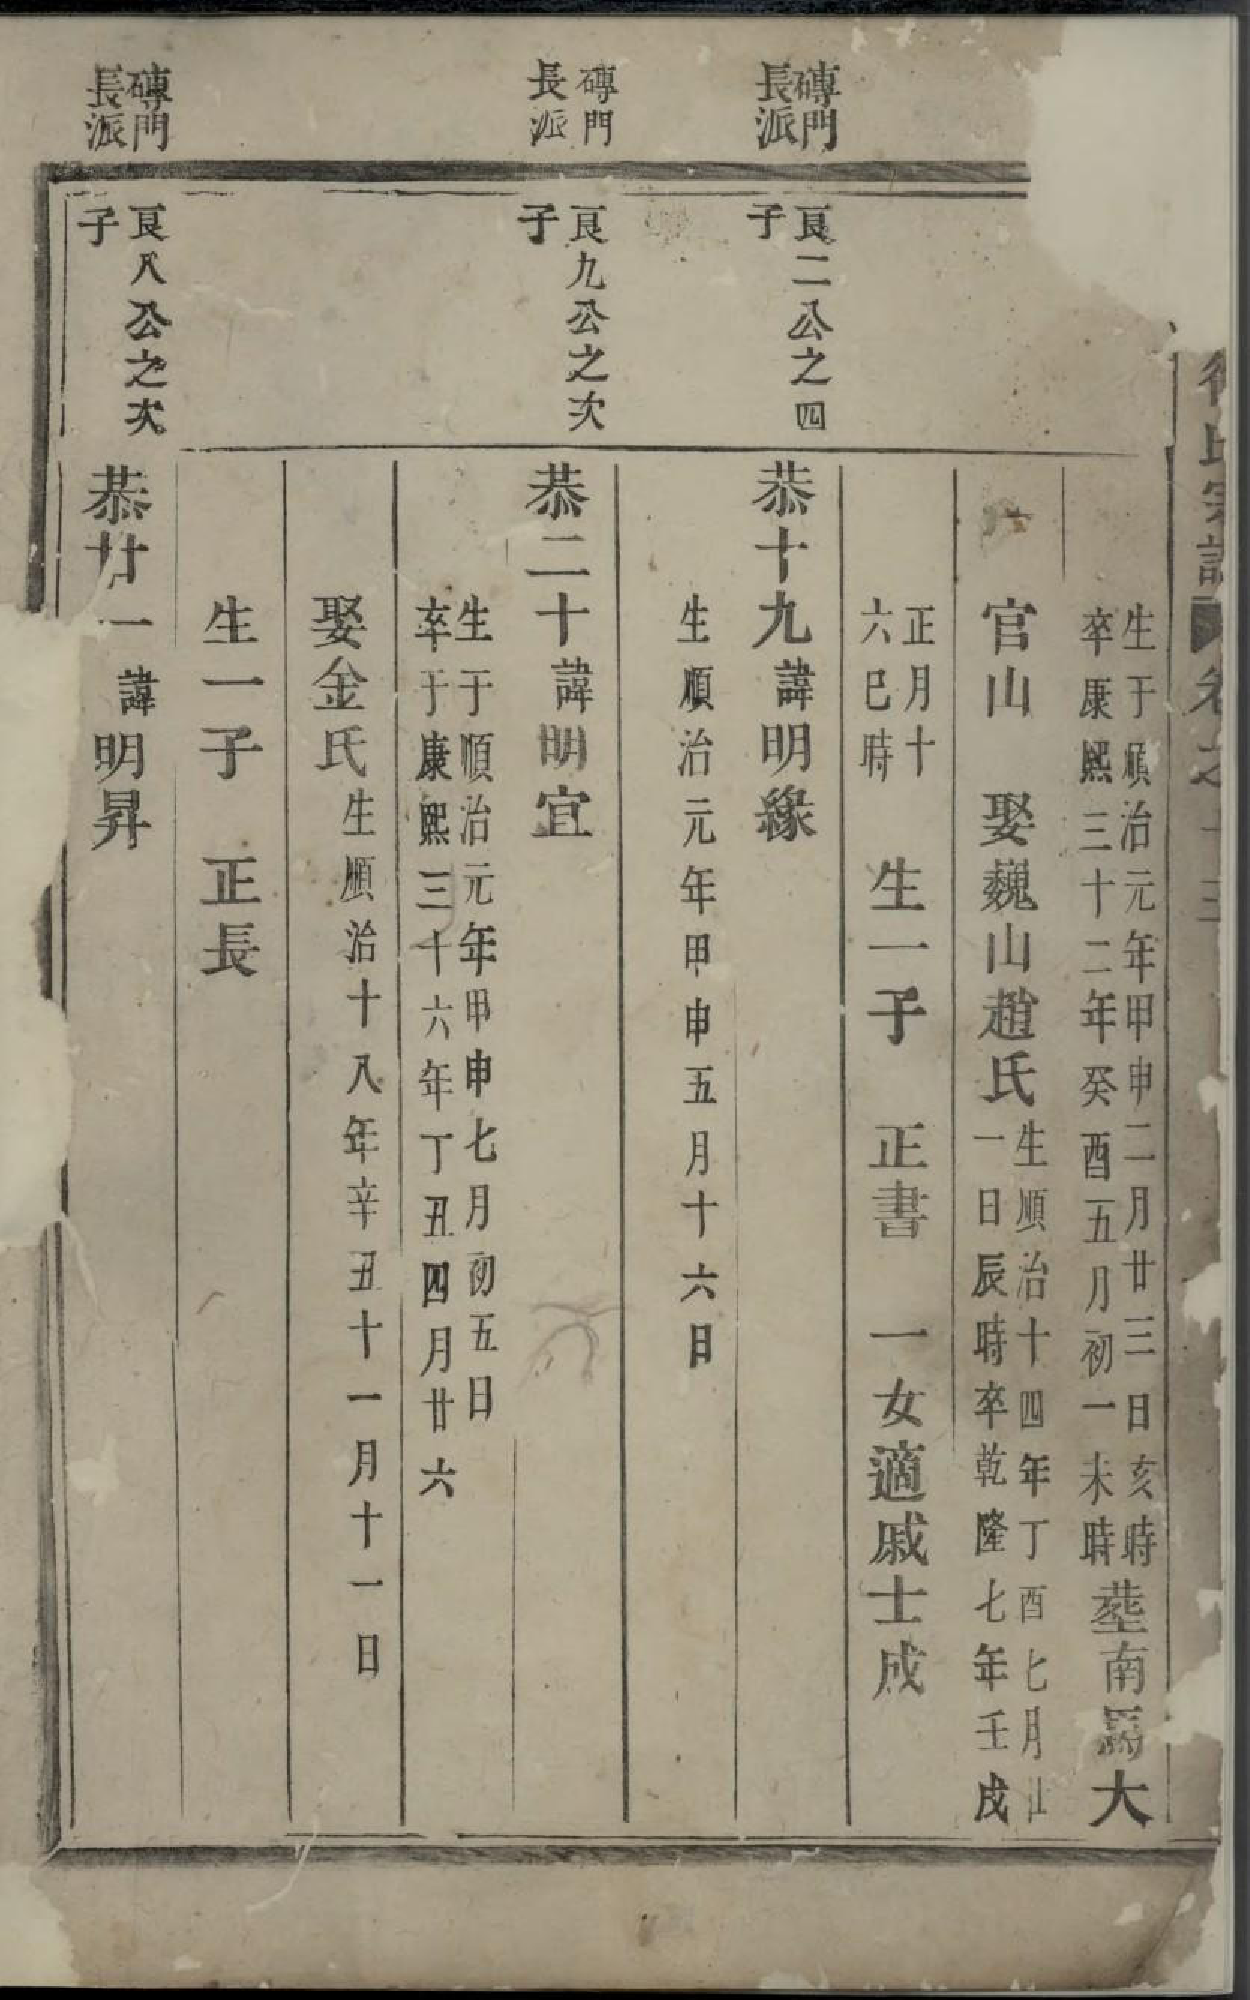 氏宗譜 卷之十三
生于順治元年甲申二月廿三日亥時
卒康熙三十二年癸酉五月初一未時
塟南馬大
官山 娶巍山趙氏
生順治十四年丁酉七月廿
一日辰時卒乾隆七年壬戌
正月十
六巳時
生一子 正書 一女適戚士成
磚門
長派
良二公之四
子
恭十九諱明緣
生順治元年甲申五月十六日
磚門
長派
良九公之次
子
恭二十諱明宜
生于順治元年甲申七月初五日
卒于康熙三十六年丁丑四月廿六
娶金氏生順治十八年辛丑十一月十一日
生一子 正長
磚門
長派
良八公之次
子
恭廿一諱明昇